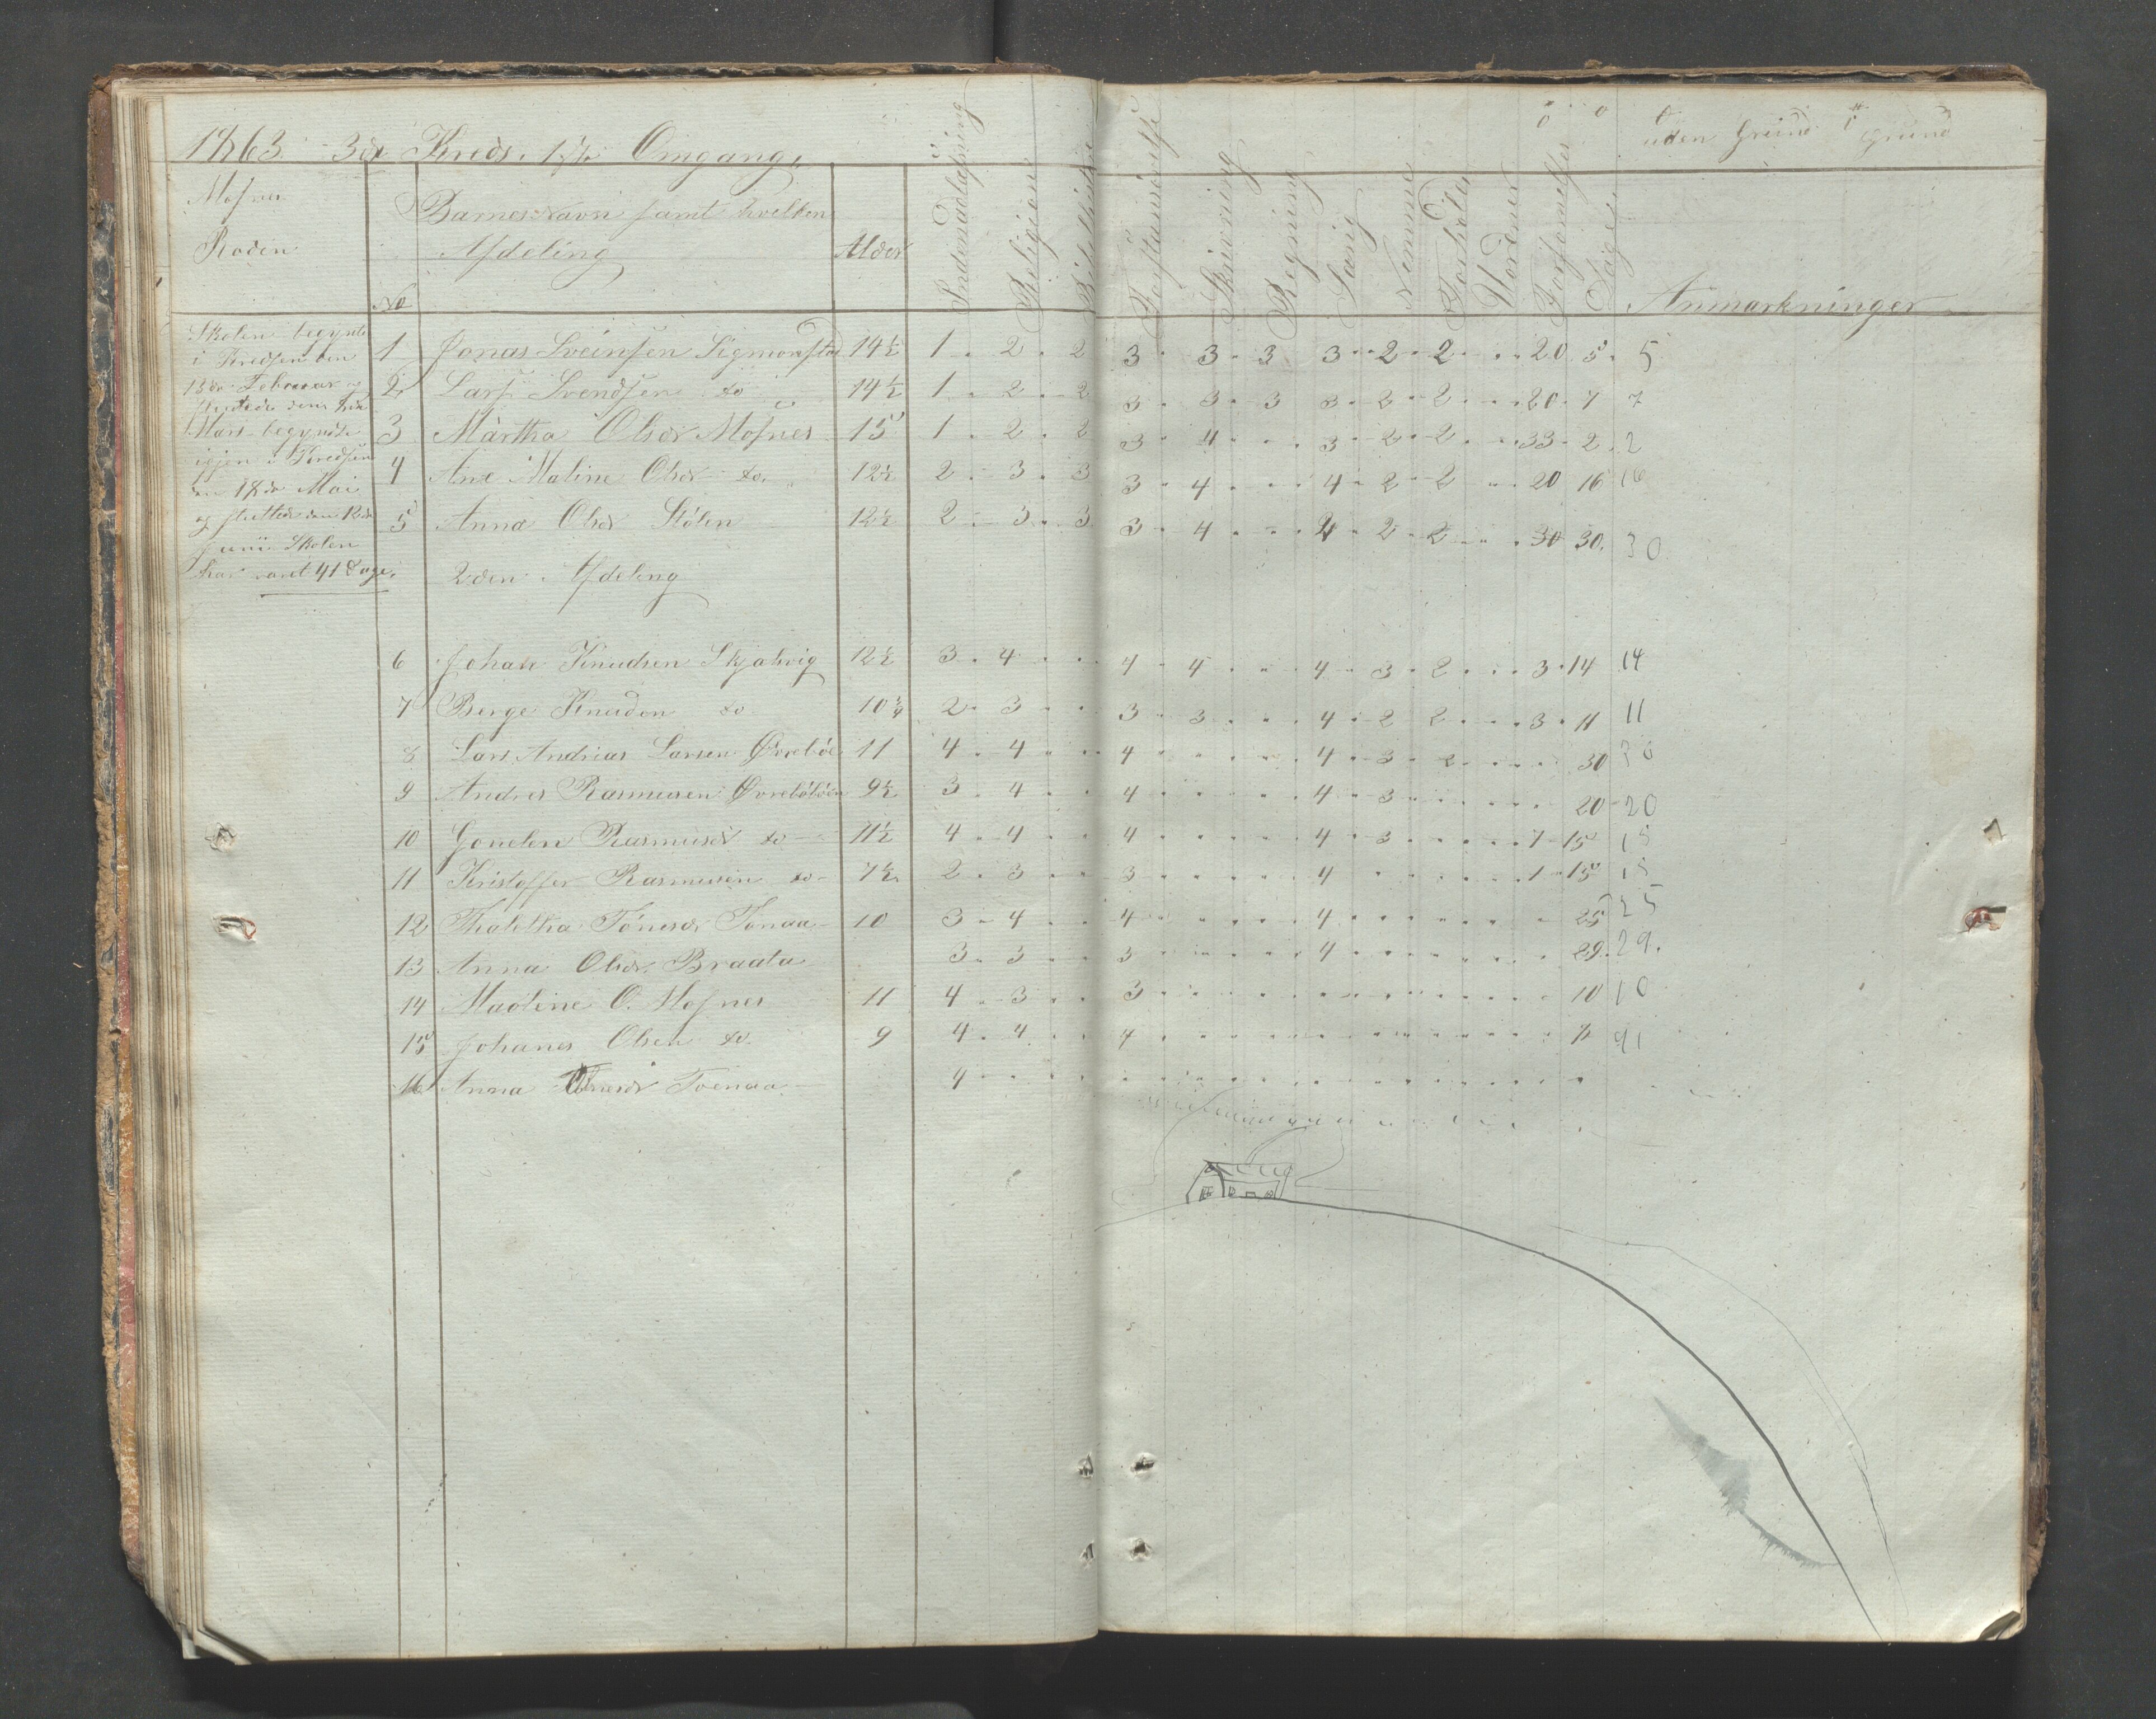 1863 3die Kreds. 1ste Omgang.
uden Grund Grund
Mosnes
Roden
No
Barnes Navn samt hvilken
Afdeling
Alder
Indenadlæsning
Religion
Forstandsøvelse
Skrivning
Regning
Sang
Nemme
Forhold
Forsømmelser
Dage
Anmærkninger
Skolen begynte
i Kredsen den
13de Februar og
sluttede den
Mars begyndte
igjen i Kredsen
den 18de Mai
og sluttede den 12de
Juni Skolen
har varet 41 Dage.
1 Jonas Sveinsen Sigmonstad 14½ 1 2 2 3 3 3 3 2 2 20 5 5
2 Lars Svendsen do 14½ 1 2 2 3 3 3 3 2 2 20 7 7
3 Märtha Olsdr Mosnes 15 1 2 2 3 4 3 2 2 33 2 2
4 Ane Maline Olsdr do 12½ 2 3 3 3 4 4 2 2 20 16 16
5 Anna Olsdr Stølen 12½ 2 3 3 3 4 4 2 2 30 30 30
2den Afdeling
6 Johan Knudsen Skjølvig 12½ 3 4 4 4 4 3 2 3 14 14
7 Berge Knudsen do 10¾ 2 3 3 3 4 2 2 3 11 11
8 Lars Andrias Larsen Øvrebøe 11 4 4 4 4 3 2 30 30
9 Andres Rasmusen 9½ 3 4 4 4 3 20 20
10 Rasmusdr do 11½ 4 4 4 4 3 7 15 15
11 Kristoffer Rasmusen do 7½ 2 3 3 4 1 15 15
12 Tønesdr Tønaa 10 3 4 4 4 25 25
13 Anna Olsdr Braata 3 3 3 4 29 29
14 Madline O. Mosnes 11 4 3 3 10 10
15 Johanes Olsen do 9 4 4 4
16 Anna Tønesdr Toenaa 4